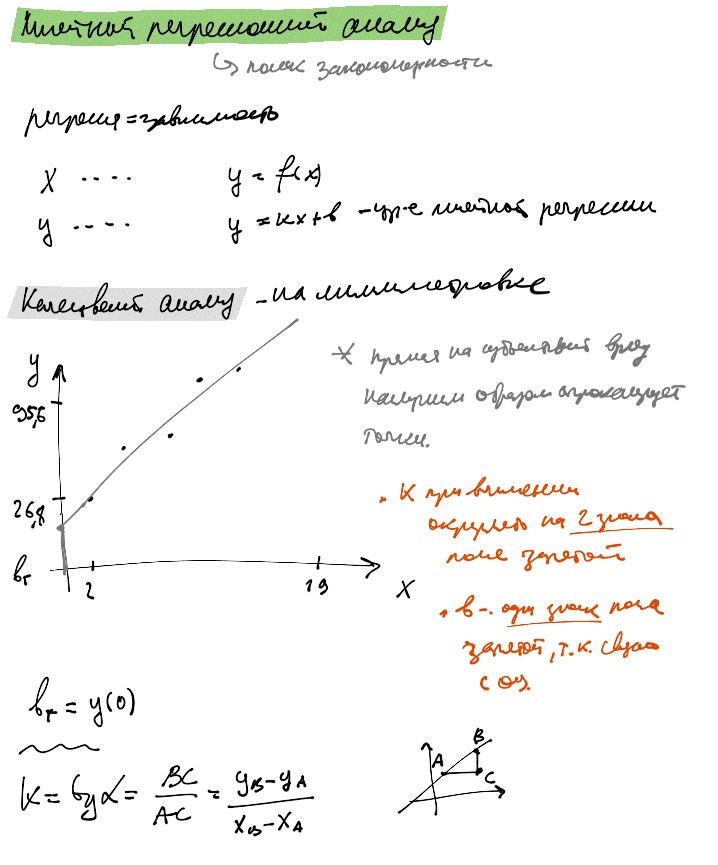 Линейный регрессионный анализ
↳ поиск закономерности
регрессия = зависимость
x .... y = f(x)
y .... y = kx + b - ур-е линейной регрессии
Качественный анализ - на миллиметровке
y
95,6
26,8
bг
2
19
x
* прямая на субъективный взгляд
наилучшим образом аппроксимирует
точки.
• k при вычислении
округлять на 2 знака
после запятой
• b - один знак после
запятой, т.к. связано
с oy.
bг = y(0)
k = tg α = BC/AC = (yB - yA)/(xB - xA)
A
B
C